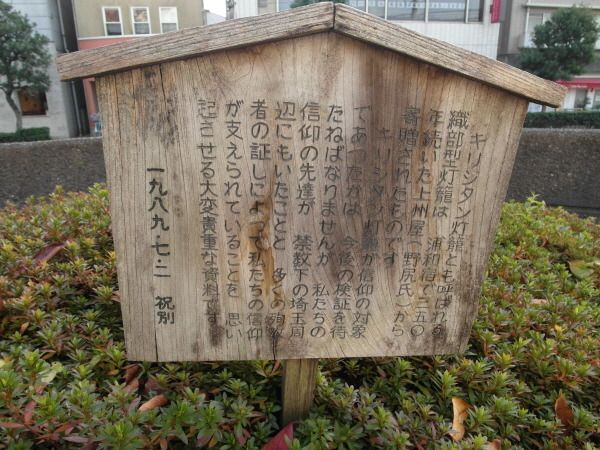 キリシタン灯籠とも呼ばれる
織部型灯籠は 浦和宿で二五〇
年続いた上州屋(野尻氏)から
寄贈されたものです
キリシタン灯籠が信仰の対象
であったかは 今後の検証を待
たねばなりませんが 私たちの
信仰の先達が 禁教下の埼玉周
辺にもいたことと 多くの殉教
者の証しによって私たちの信仰
が支えられていることを 思い
起させる大変貴重な資料です
一九八九・七・二 祝別